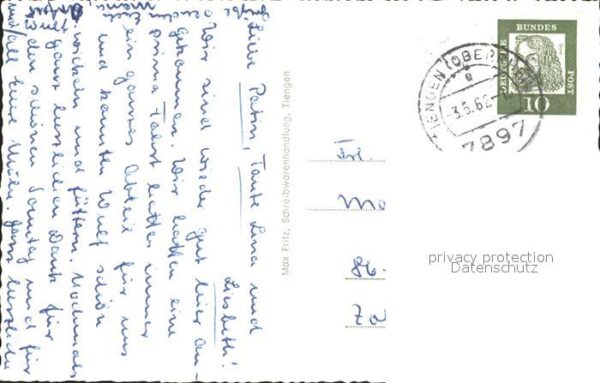 Liebe Patin, Tante Lina und
Lisbeth!
Wir sind wieder gut hier an-
gekommen. Wir hatten eine
prima Fahrt hatten immer
ein ganzes Abteil für uns
und konnten Wulf schön
wickeln und füttern. Nochmals
ganz herzlichen Dank für
den schönen Sonntag und für
all eure Mühe. Ganz herzliche
Max Fritz, Schreibwarenhandlung, Tiengen
DEUTSCHE
BUNDES
POST
10
TIENGEN (OBERRHEIN)
e
-3.5.62
7897
Frl.
Mo
Zo
privacy protection
Datenschutz